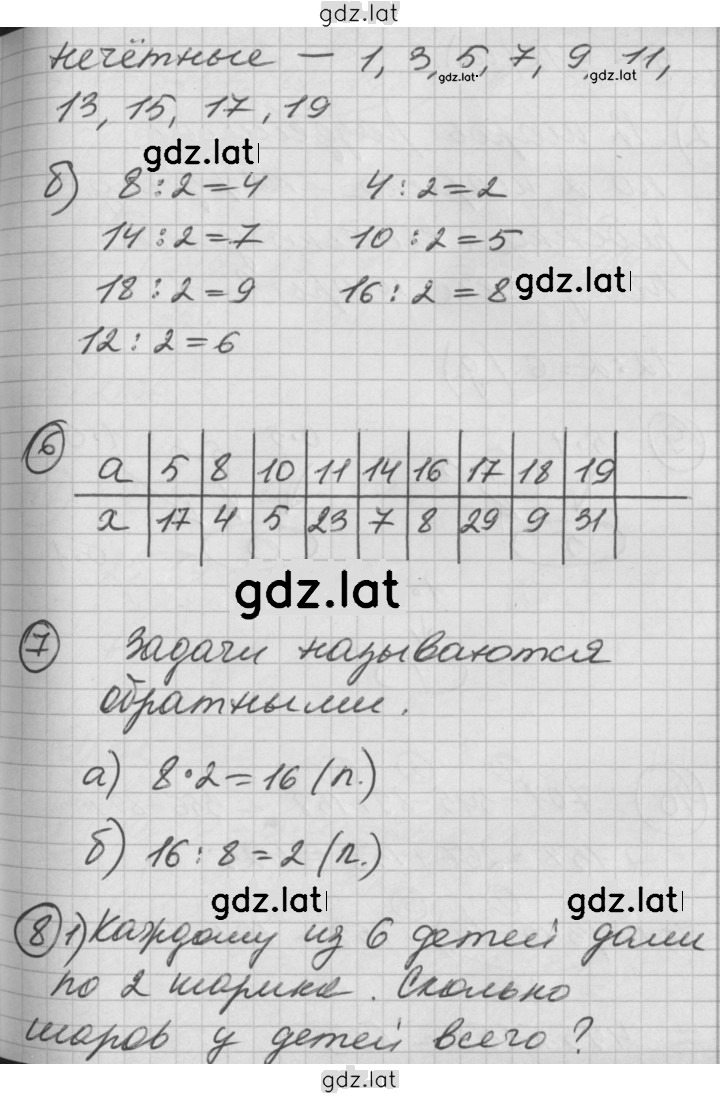 gdz.lat
нечётные — 1, 3, 5, 7, 9, 11,
gdz.lat gdz.lat
13, 15, 17, 19
gdz.lat
б) 8 : 2 = 4 4 : 2 = 2
14 : 2 = 7 10 : 2 = 5
18 : 2 = 9 16 : 2 = 8 gdz.lat
12 : 2 = 6
6 a | 5 | 8 | 10 | 11 | 14 | 16 | 17 | 18 | 19
x | 17 | 4 | 5 | 23 | 7 | 8 | 29 | 9 | 31
gdz.lat
7 Задачи называются
обратными.
а) 8 · 2 = 16 (п.)
б) 16 : 8 = 2 (п.)
gdz.lat gdz.lat
8 1) Каждому из 6 детей дали
по 2 шарика. Сколько
шаров у детей всего?
gdz.lat